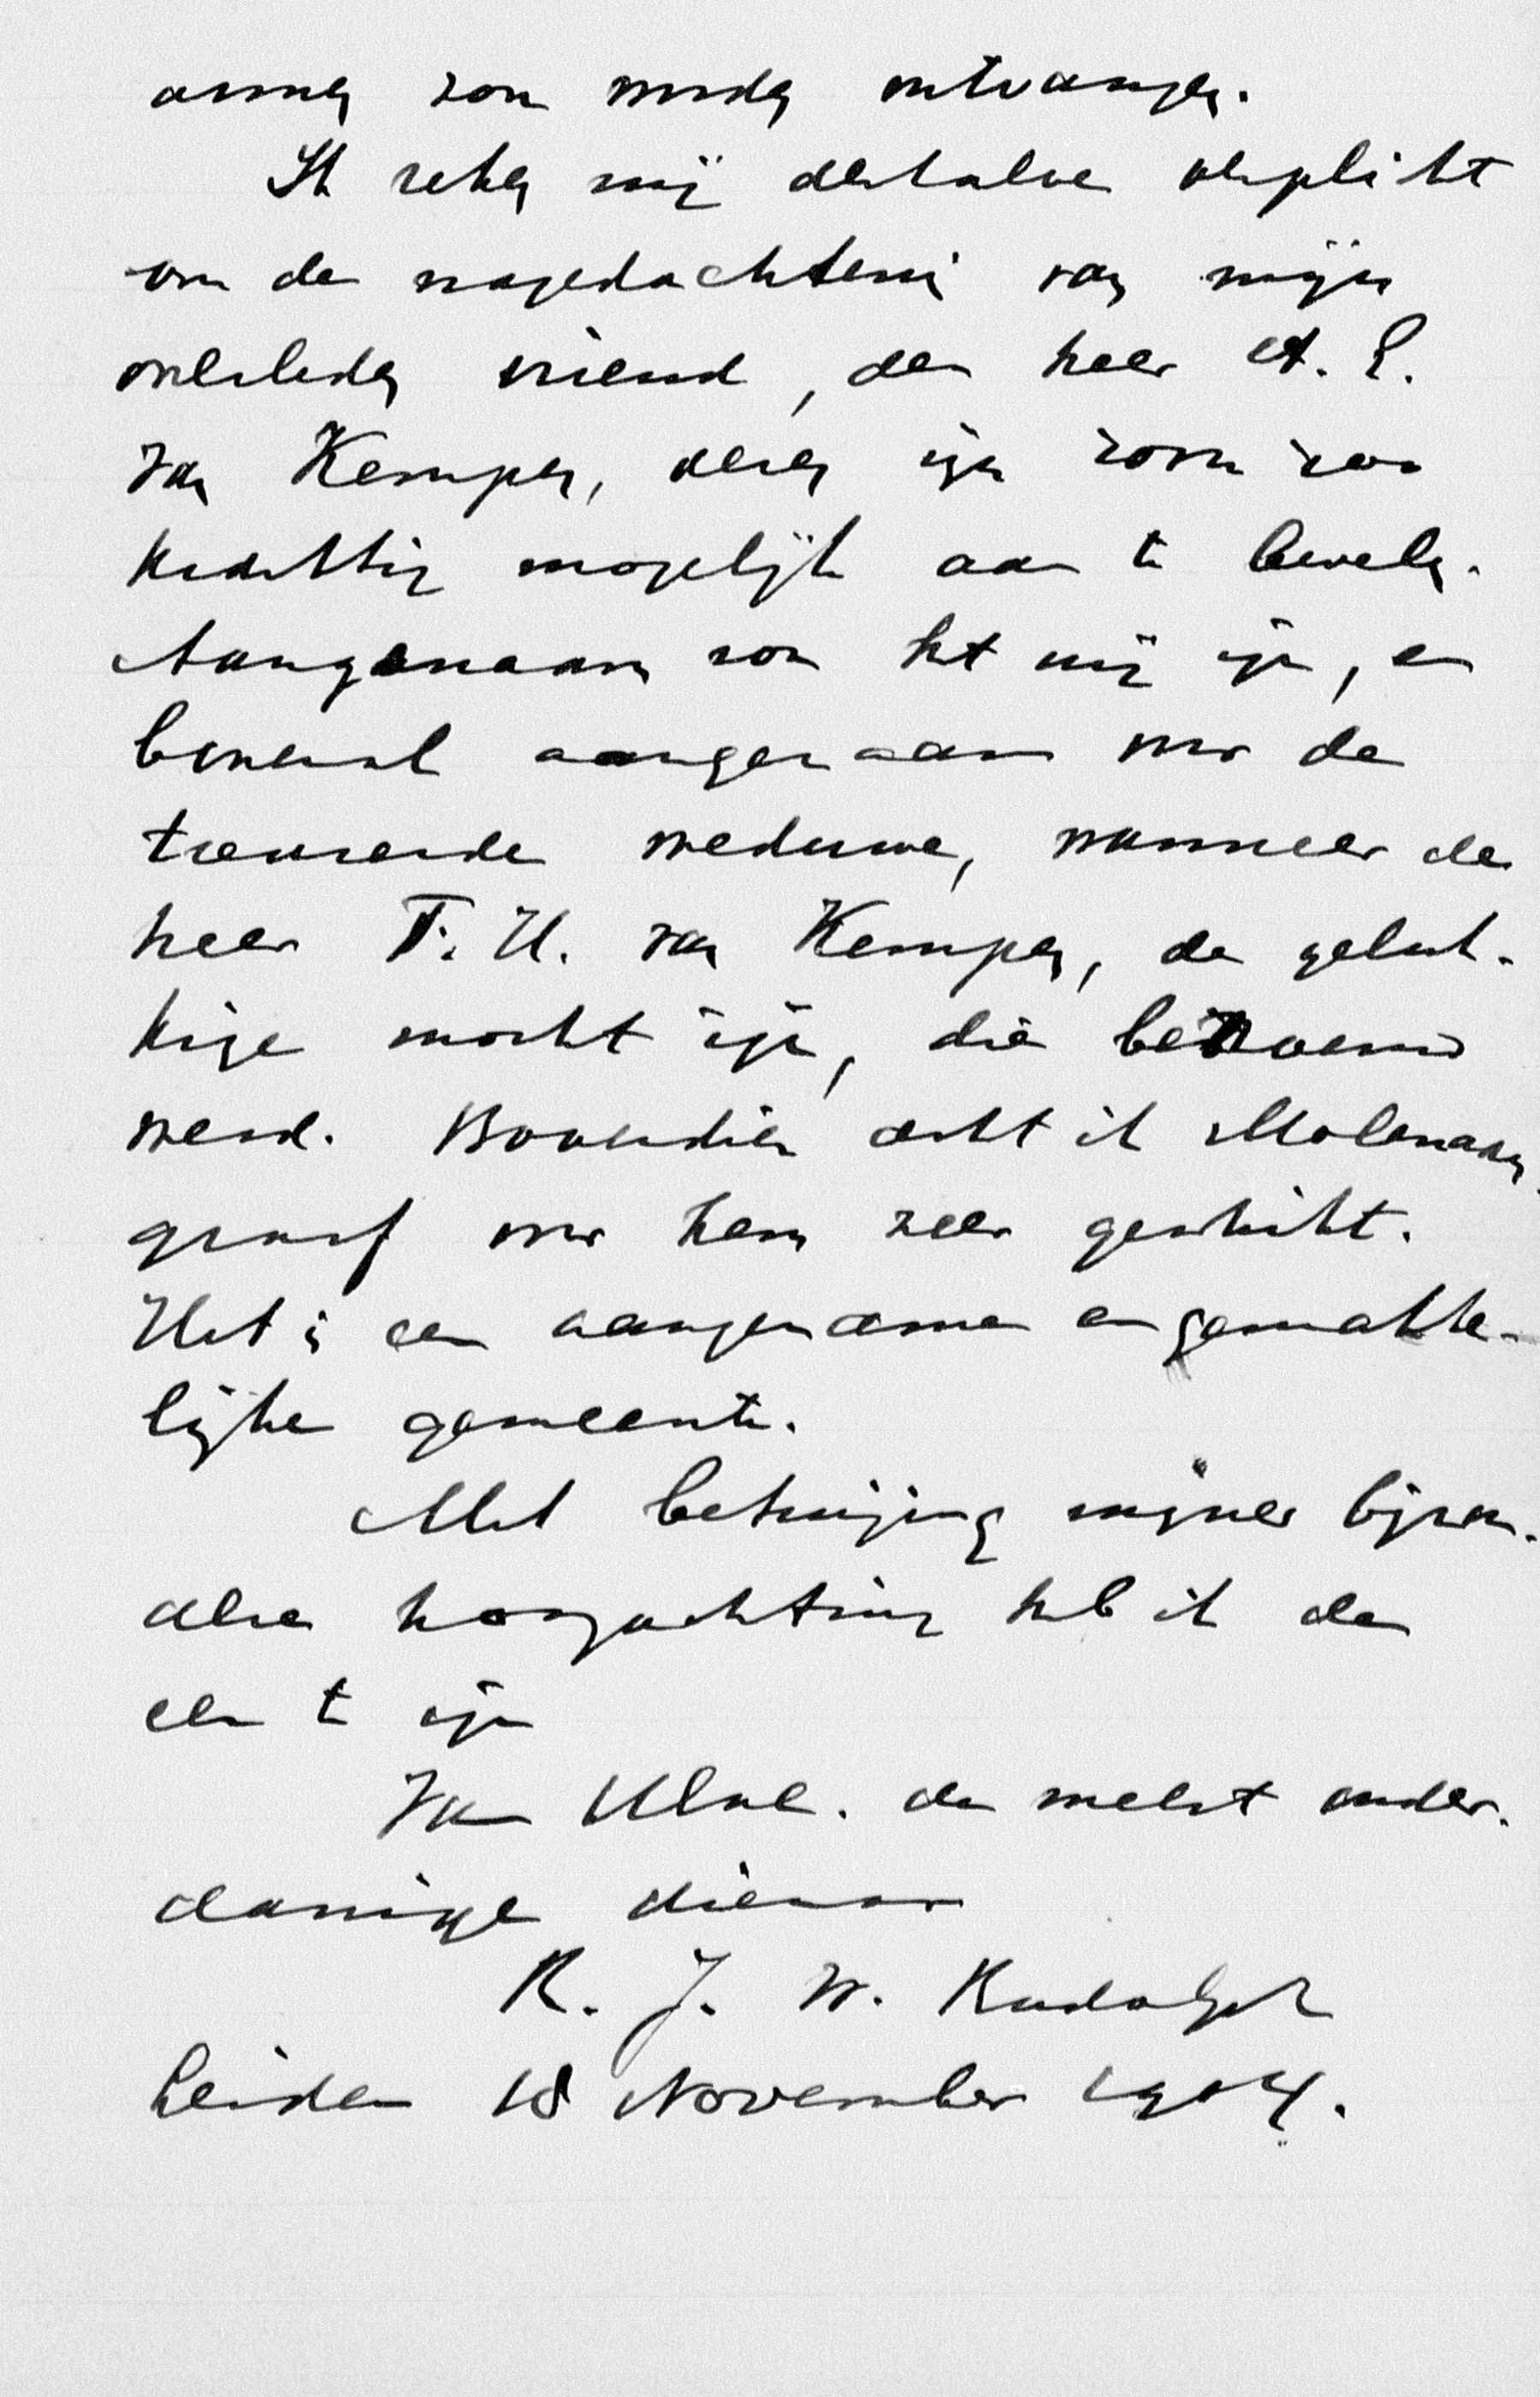 armen zou worden ontvangen.
Ik reken mij derhalve verplicht
om de nagedachtenis van mijn
overleden vriend, den heer A. L.
van Kempen, dezen zijn zoon zoo
krachtig mogelijk aan te bevelen.
Aangenaam zou het mij zijn, en
bovenal aangenaam voor de
treurende weduwe, wanneer de
heer F. H. van Kempen, de geluk-
kige mocht zijn, die benoemd
werd. Bovendien acht ik Molenaars
graaf voor hem zeer geschikt.
Het is een aangename en gemakke-
lijke gemeente.
Met betuiging mijner bijzon-
dere hoogachting heb ik de
eer te zijn
Van UEw. de meest onder-
danige dienaar
R. J. W. Rudolph
Leiden 18 November 1904.